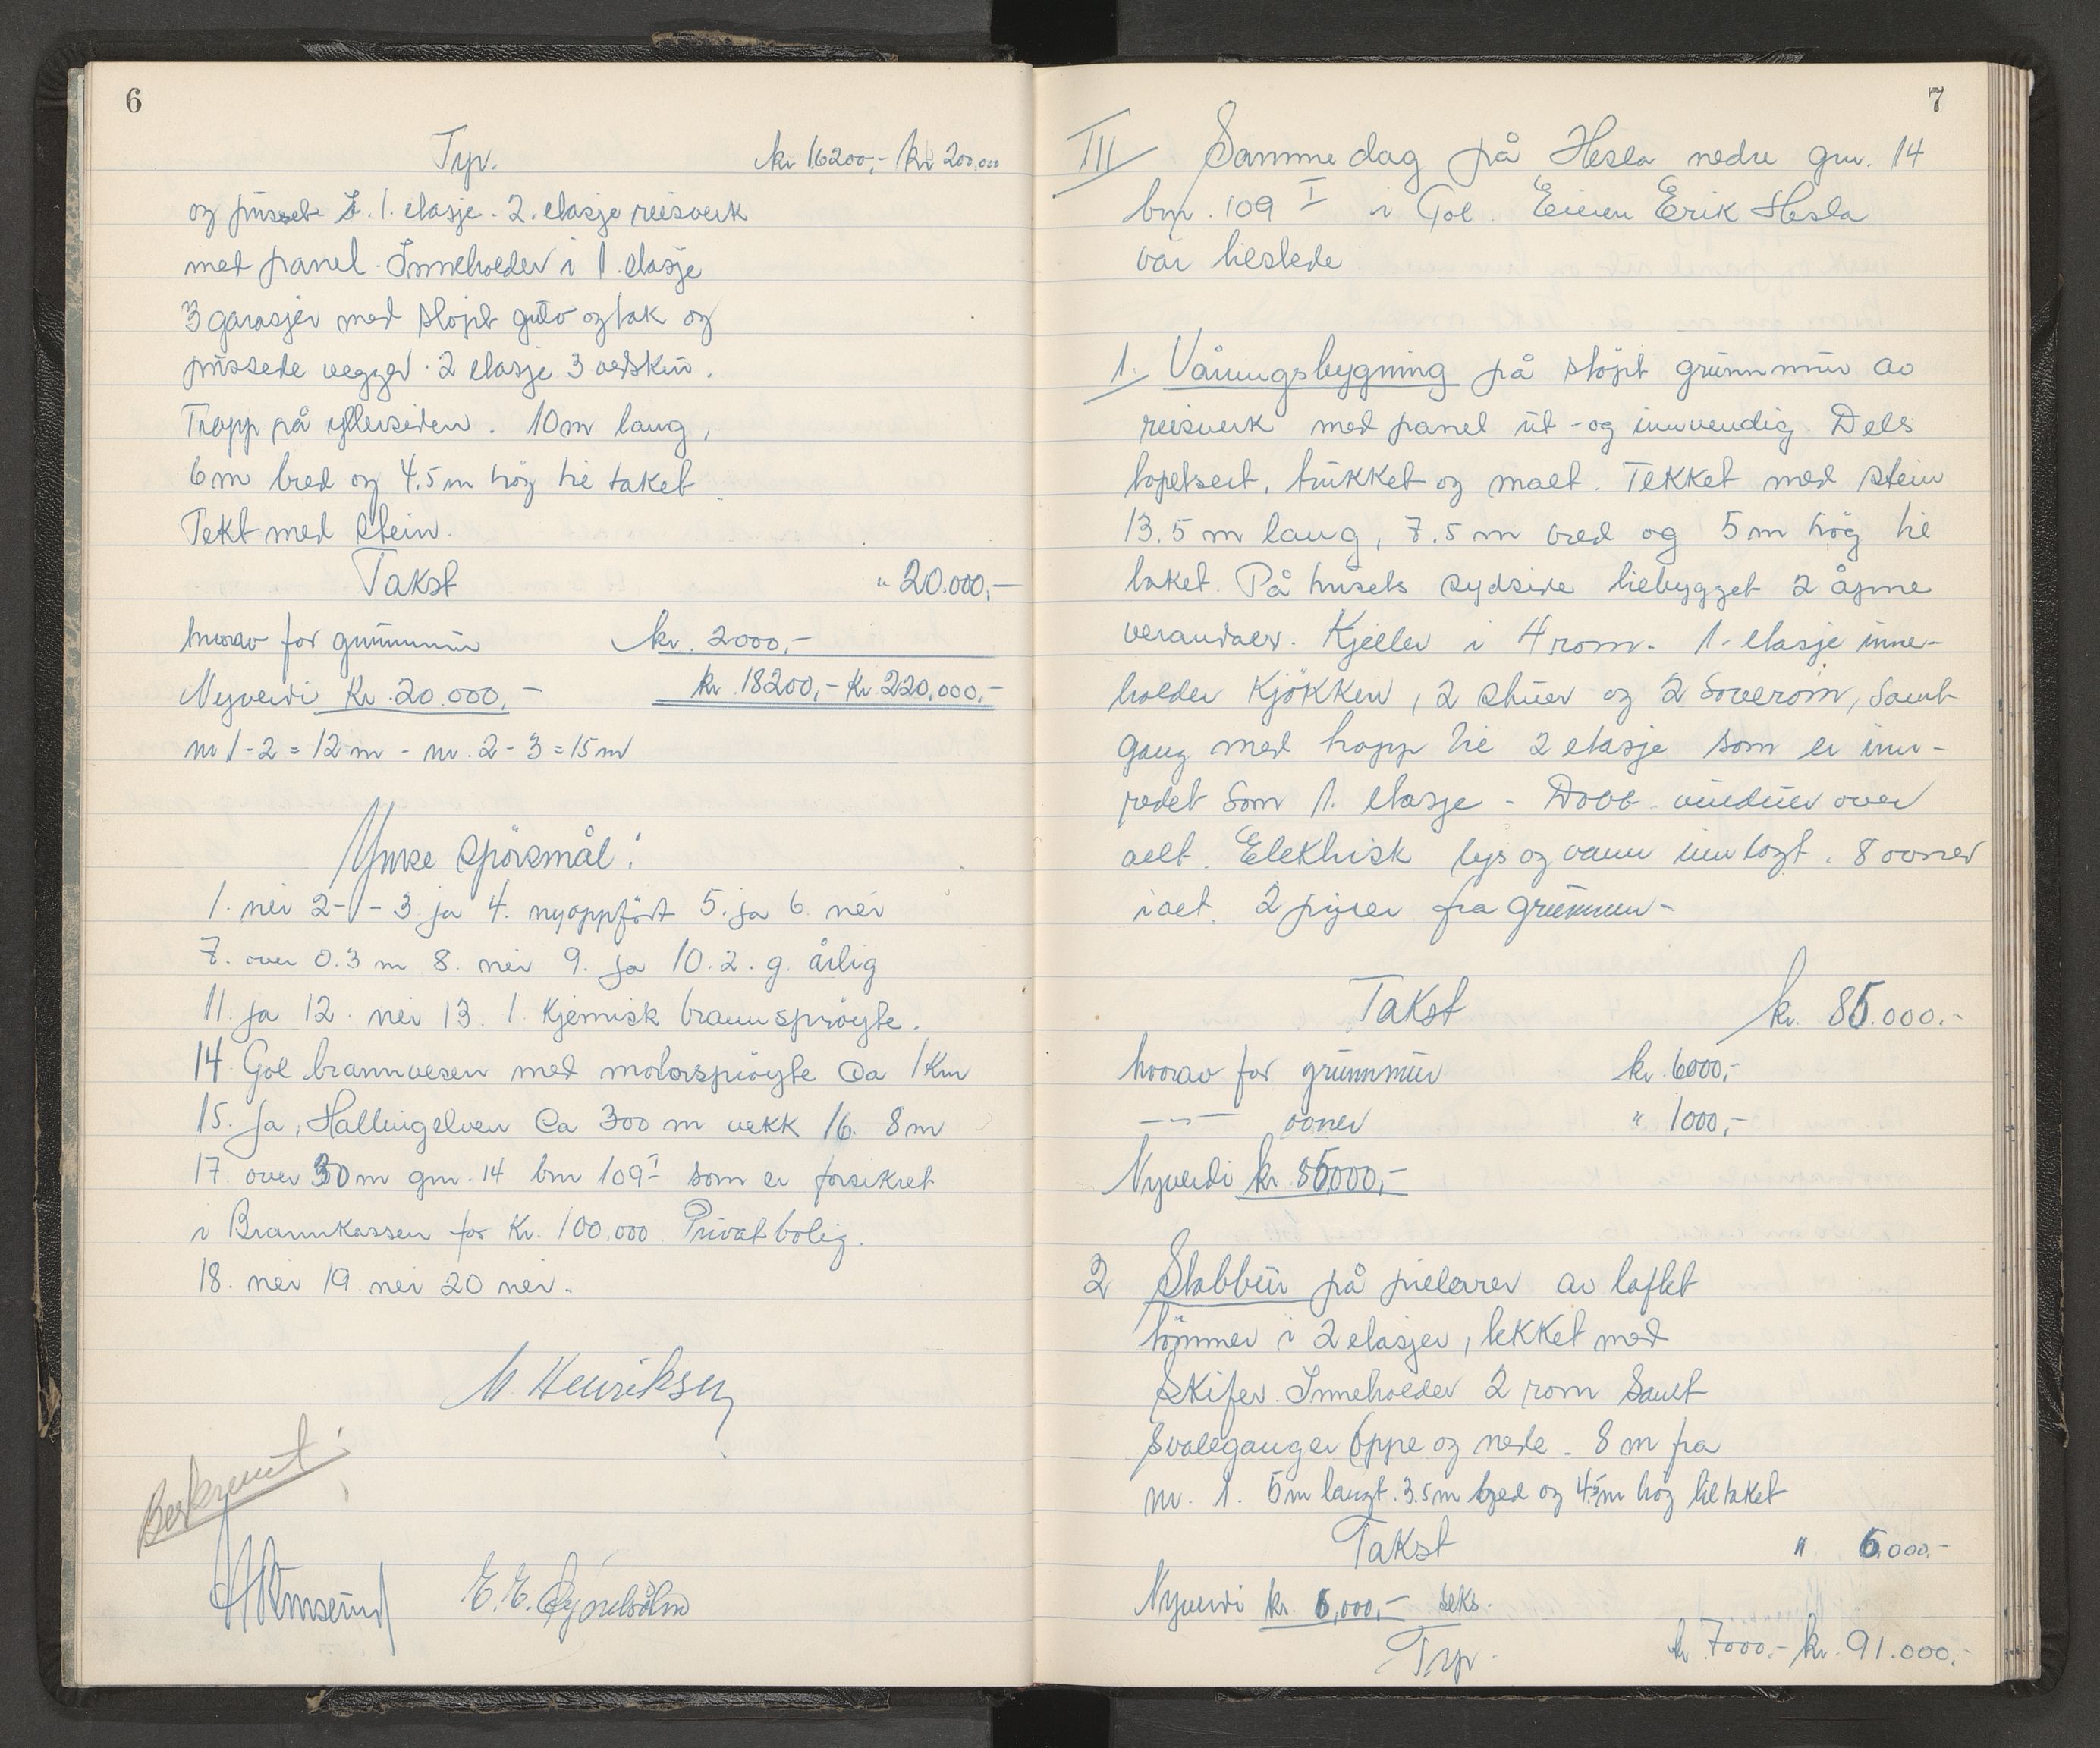 6
Trp. kr 16200,- kr 200.000
og pussete I. 1. etasje. 2. etasje reisverk
med panel. Inneholder i 1. etasje
3 garasjer med støpt gulv og tak og
pussede vegger. 2 etasje 3 vedskur.
Trapp på yttersiden. 10 m lang,
6 m bred og 4.5 m hög til taket
Tekt med stein.
Takst " 20.000,-
hvorav for grunnmur kr. 2000,-
Nyverdi kr. 20.000,- kr. 18200,- kr. 220.000,-
nr 1-2 = 12 m - nr. 2-3 = 15 m
Ymse spörsmål:
1. nei 2-/- 3. ja 4. nyoppfört 5. ja 6. nei
7. over 0.3 m 8. nei 9. ja 10. 2. g. årlig
11. ja 12. nei 13. 1 kjemisk brannspröyte.
14. Gol brannvesen med motorspröyte Ca 1 Km
15. ja, Hallingelven Ca 300 m vekk 16. 8 m
17. over 30 m gnr. 14 bnr 109 I som er forsikret
i Brannkassen for Kr. 100.000. Privatbolig.
18. nei 19 nei 20 nei.
M. Henriksen
E. E.
7
III Samme dag på Hesla nedre gnr. 14
bnr. 109 I i Gol. Eieren Erik Hesla
var tilstede
1. Våningsbygning på stöpt grunnmur av
reisverk med panel ut- og innvendig. Dels
tapetsert, trukket og malt. Tekket med stein
13.5 m lang, 7.5 m bred og 5 m hög til
taket. På husets sydside tilbygget 2 åpne
verandaer. Kjeller i 4 rom. 1. etasje inne-
holder kjökken, 2 stuer og 2 soverom, samt
gang med trapp til 2 etasje som er inn-
redet som 1. etasje - Dobb. vinduer over
alt. Elektrisk lys og vann innlagt. 8 ovner
i alt. 2 piper fra grunnen -
Takst kr. 85.000.-
hvorav for grunnmur kr. 6000,-
-"- ovner " 1000,-
Nyverdi kr. 85000,-
2 Stabbur på pilarer av laftet
tömmer i 2 etasjer, tekket med
skifer. Inneholder 2 rom samt
svaleganger oppe og nede. 8 m fra
nr. 1. 5 m langt. 3.5 m bred og 4.5 m hög til taket
Takst " 6.000,-
Nyverdi kr. 6.000,- seks.
Trp. kr 7000.- kr. 91.000.-